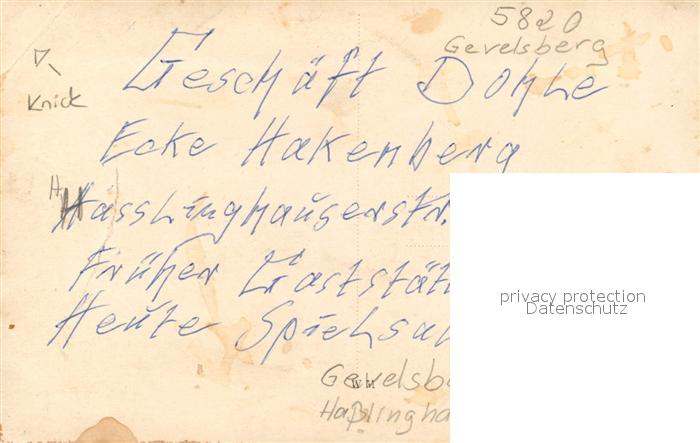 5820
Gevelsberg
Knick
Geschäft Dohle
Ecke Hakenberg
H
Hasslinghauserstr.
Früher Gaststät
Heute Spielsal
privacy protection
Datenschutz
Gevelsb
WM
Haßlingha